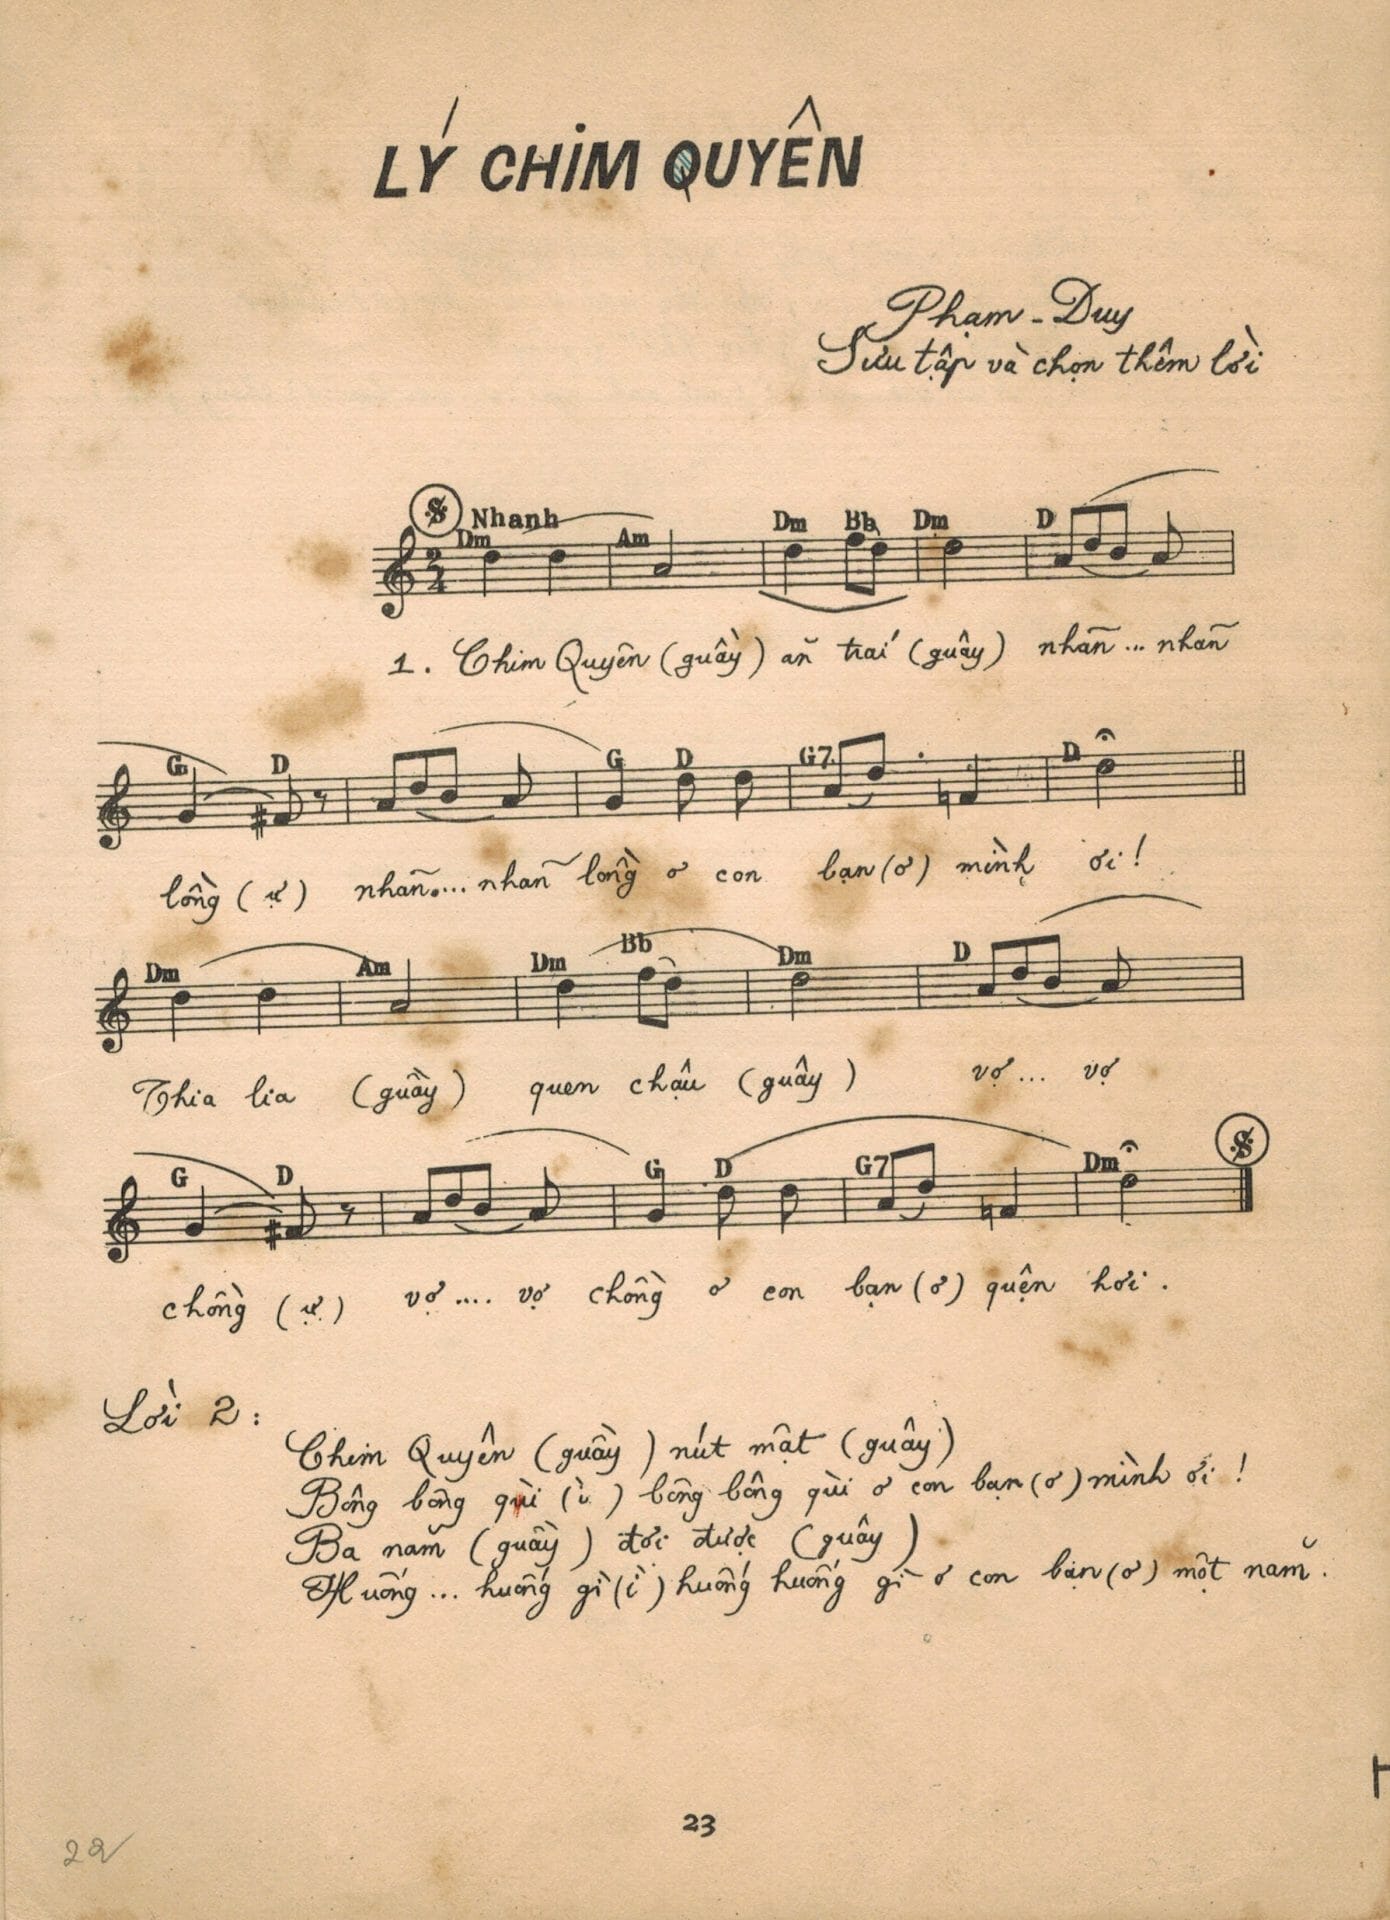 LÝ CHIM QUYÊN
Phạm - Duy
Sưu tập và chọn thêm lời
Nhanh
Dm Am Dm Bb Dm D
2/4
1. Chim Quyên (quầy) ăn trái (quây) nhãn ... nhãn
G D G D G7 D
lồng (ự) nhãn.... nhãn lồng ơ con bạn (ơ) mình ơi !
Dm Am Dm Bb Dm D
Thia lia (quầy) quen chậu (quây) vợ ... vợ
G D G D G7 Dm
chồng (ự) vợ .... vợ chồng ơ con bạn (ơ) quện hơi .
Lời 2 :
Chim Quyên (quầy) nút mật (quây)
Bông bông qùi (ì) bông bông qùi ơ con bạn (ơ) mình ơi !
Ba năm (quầy) đợi được (quây)
Huống ... huống gì (ì) huống huống gì ơ con bạn (ơ) một năm .
23
22